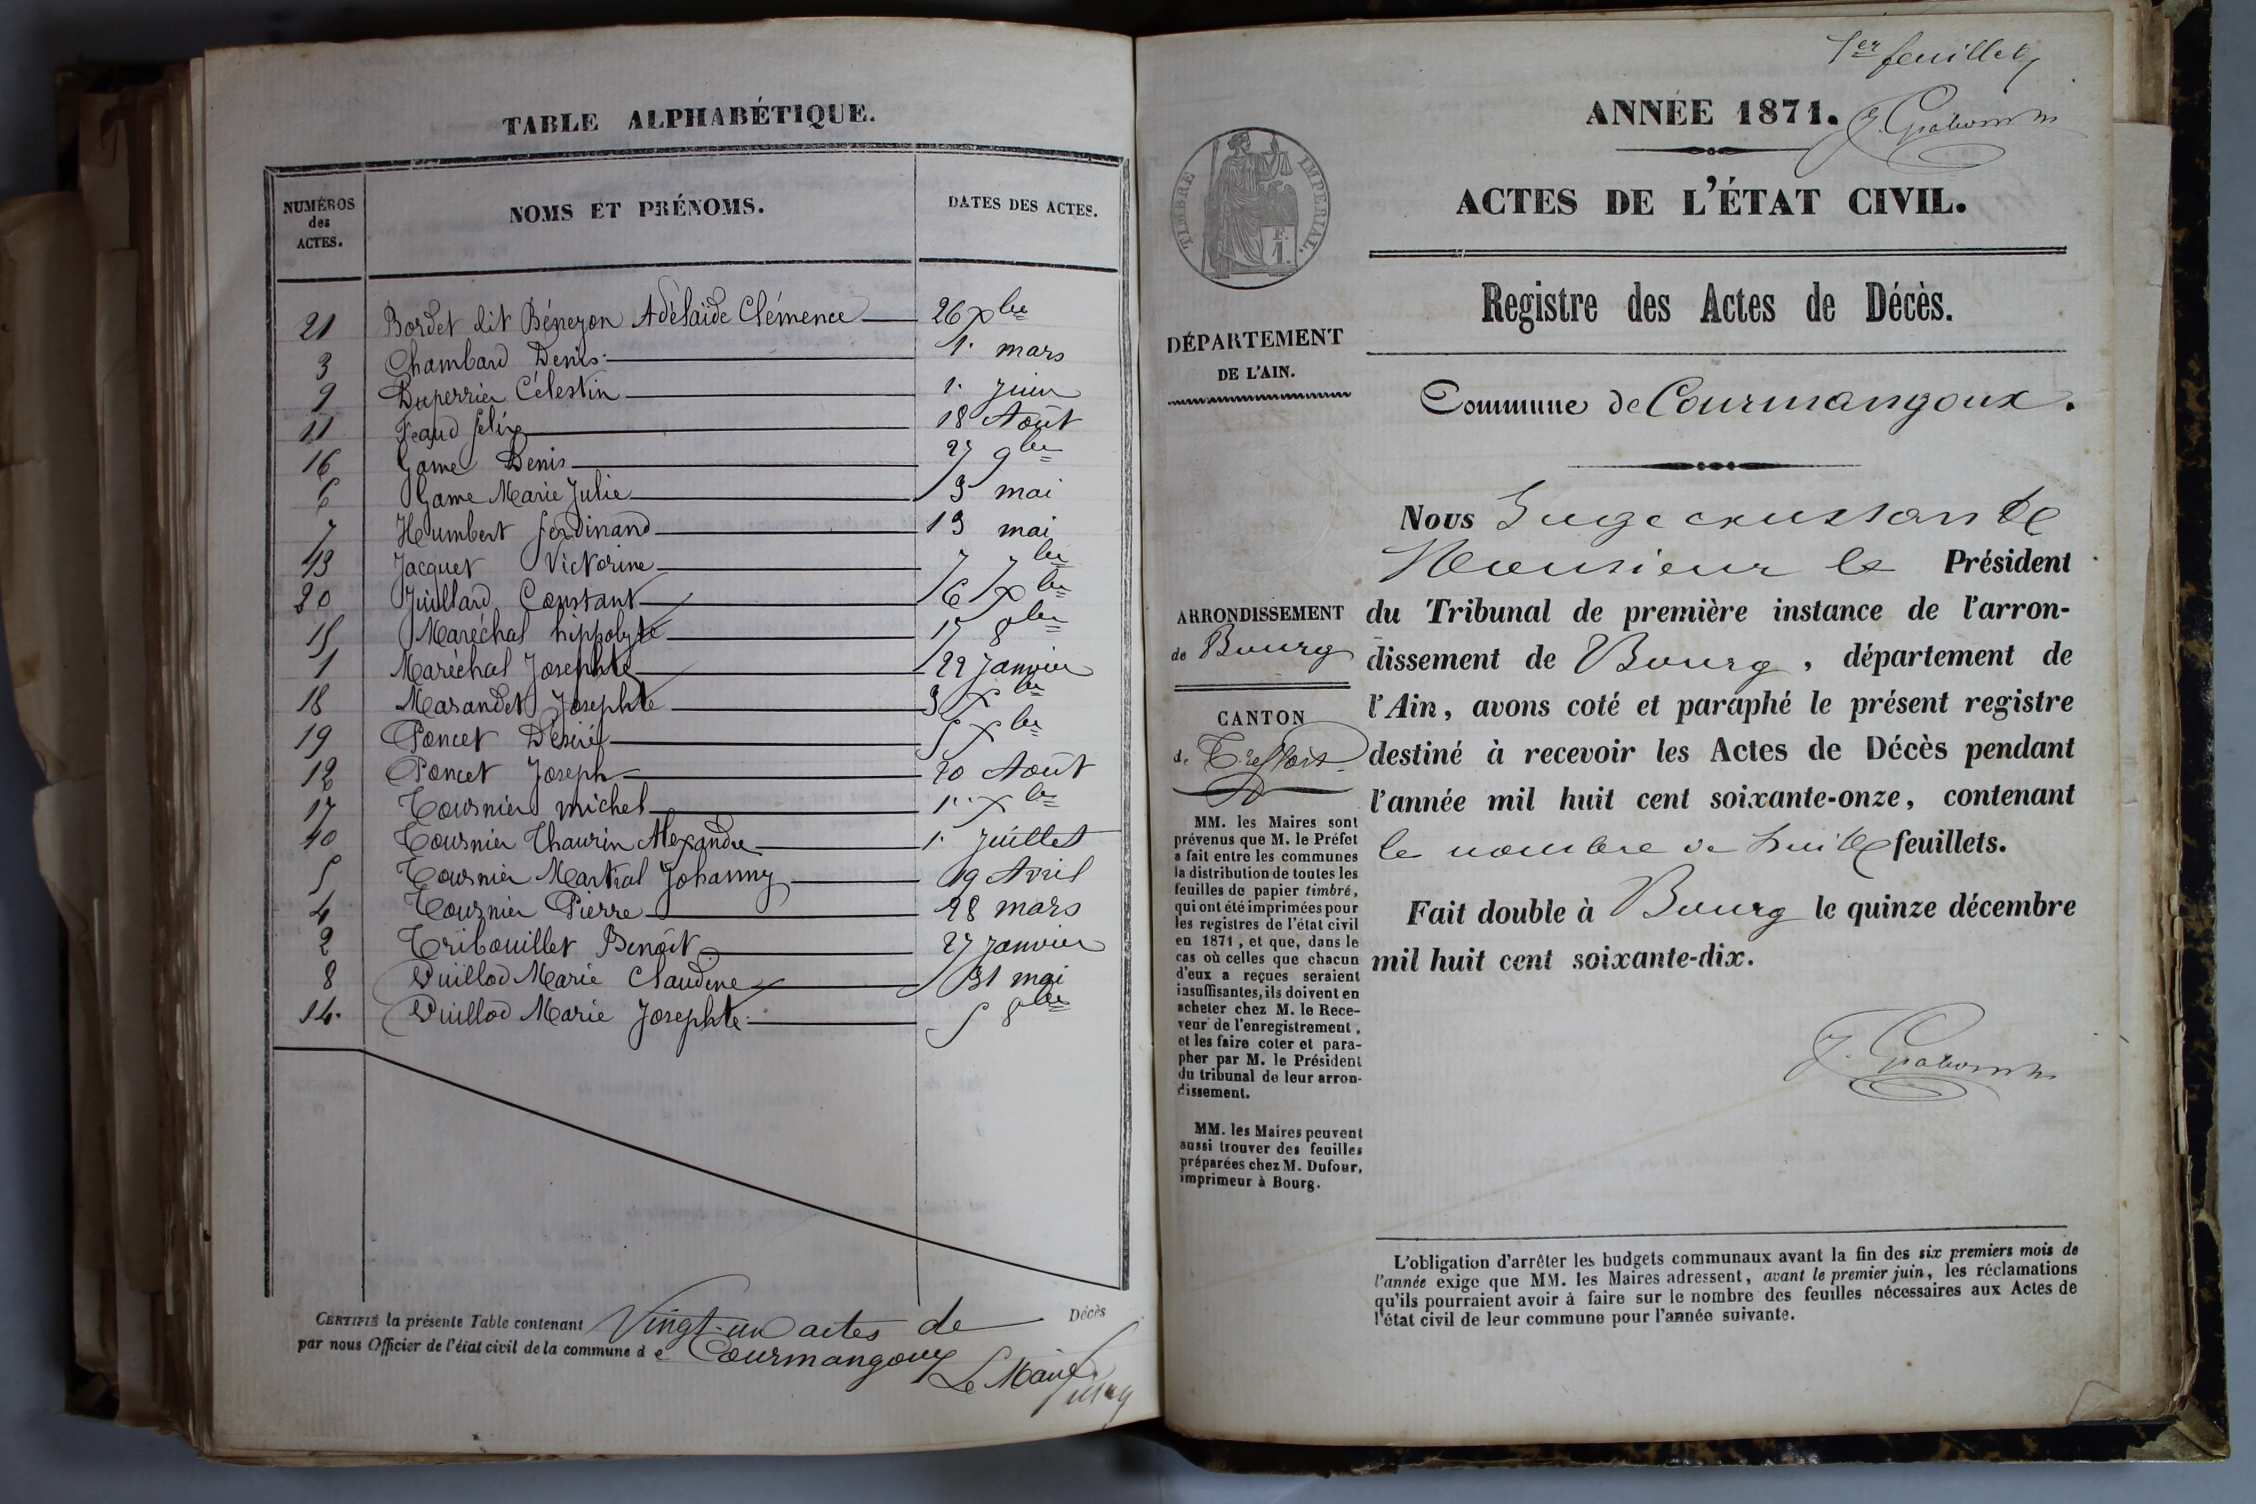 TABLE ALPHABÉTIQUE.
NUMÉROS des ACTES. NOMS ET PRÉNOMS. DATES DES ACTES.
21 Bordet dit Bénezon Adélaïde Clémence 26 Xbre
3 Chambard Denis 1. mars
9 Duperrier Célestin 1. Juin
11 Feaud félix 18 Août
16 Game Denis 27 9bre
6 Game Marie Julie 3 mai
7 Humbert ferdinand 13 mai
13 Jacquet Victorine 7 7bre
20 Juillard Constant 6 Xbre
15 Maréchal hippolyte 17 8bre
1 Maréchal Josephte 22 Janvier
18 Marandet Josephte 3 Xbre
19 Poncet Désiré 5 Xbre
12 Poncet Joseph 20 Août
17 Tournier michel 1. Xbre
10 Tournier Thaurin Alexandre 1. Juillet
5 Tournier Martial Johanny 19 Avril
4 Tournier Pierre 28 mars
2 Tribouillet Benoît 27 Janvier
8 Vuillod Marie Claudine 31 mai
14. Vuillod Marie Josephte 5 8bre
CERTIFIÉ la présente Table contenant Vingt-un actes de Décès
par nous Officier de l'état civil de la commune de Courmangoux
Le Maire
1er feuillet
ANNÉE 1871.
TIMBRE IMPÉRIAL.
F. 1.
ACTES DE L'ÉTAT CIVIL.
Registre des Actes de Décès.
DÉPARTEMENT
DE L'AIN.
Commune de Courmangoux.
Nous Juge
Monsieur le Président
du Tribunal de première instance de l'arron-
dissement de Bourg, département de
l'Ain, avons coté et paraphé le présent registre
destiné à recevoir les Actes de Décès pendant
l'année mil huit cent soixante-onze, contenant
le nombre de huit feuillets.
Fait double à Bourg le quinze décembre
mil huit cent soixante-dix.
ARRONDISSEMENT
de Bourg
CANTON
de Treffort
MM. les Maires sont
prévenus que M. le Préfet
a fait entre les communes
la distribution de toutes les
feuilles de papier timbré,
qui ont été imprimées pour
les registres de l'état civil
en 1871, et que, dans le
cas où celles que chacun
d'eux a reçues seraient
insuffisantes, ils doivent en
acheter chez M. le Rece-
veur de l'enregistrement,
et les faire coter et para-
pher par M. le Président
du tribunal de leur arron-
dissement.
MM. les Maires peuvent
aussi trouver des feuilles
préparées chez M. Dufour,
imprimeur à Bourg.
L'obligation d'arrêter les budgets communaux avant la fin des six premiers mois de
l'année exige que MM. les Maires adressent, avant le premier juin, les réclamations
qu'ils pourraient avoir à faire sur le nombre des feuilles nécessaires aux Actes de
l'état civil de leur commune pour l'année suivante.